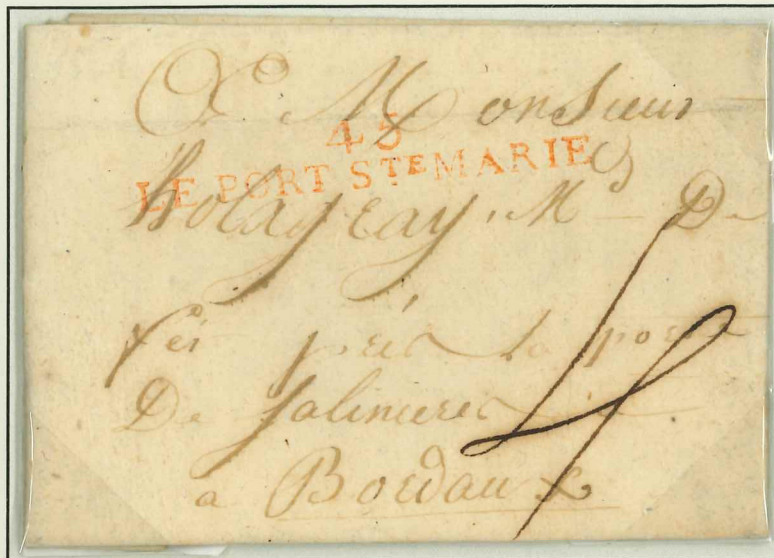 A Monsieur
45
LE PORT STE MARIE
Md De
fer près la porte
De Salinieres
a Bordaux
4